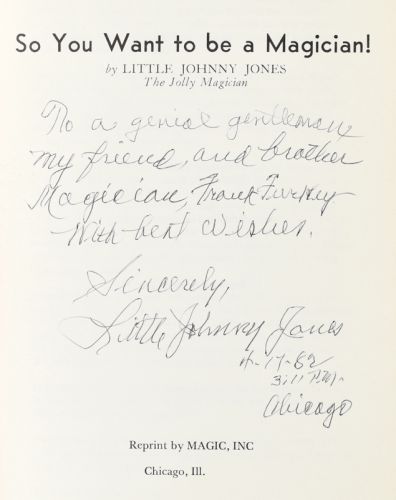 So You Want to be a Magician!
by LITTLE JOHNNY JONES
The Jolly Magician
To a genial gentleman
my friend, and brother
Magician, Frank
With best Wishes.
Sincerely,
Little Johnny Jones
4-17-82
3:11 P.M.
Chicago
Reprint by MAGIC, INC
Chicago, Ill.